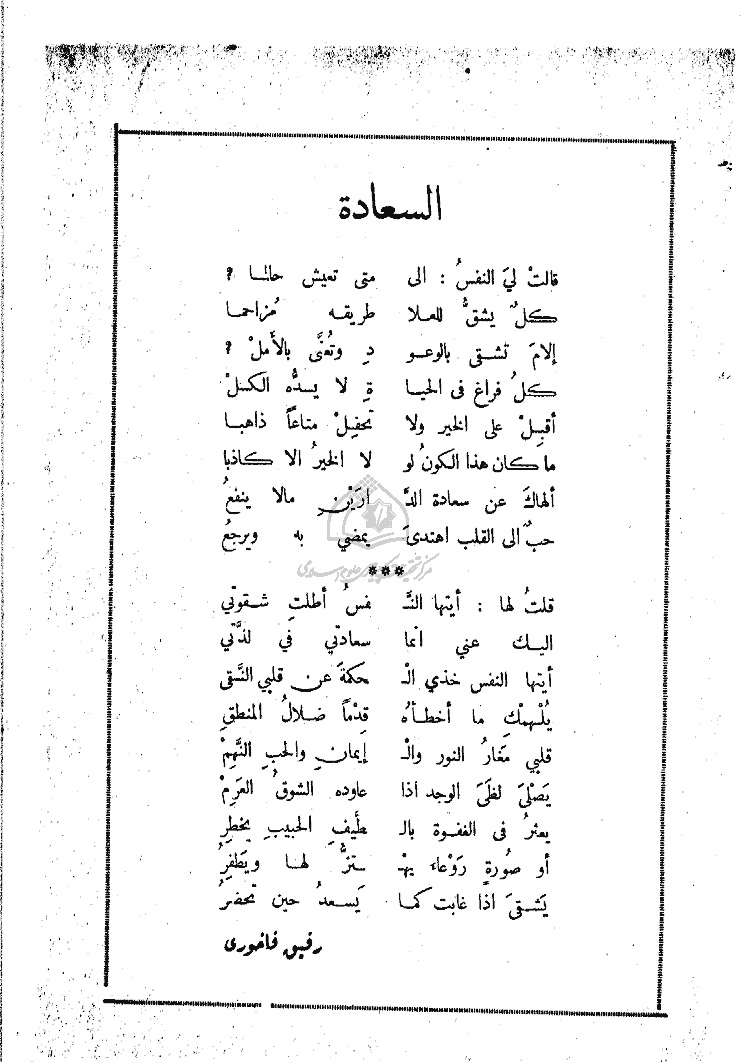 السعادة
قالتْ ليَ النفسُ : الى متى تعيش حالمـا ?
كلٌ يشقُّ للعلا طريقه مُزاحمـا
إلامَ تشقى بالوعو دِ وتُعنَّى بالأملْ ?
كلُ فراغ فى الحيـا ةِ لا يسدُّه الكسلْ
أقبِلْ على الخير ولا تحفِلْ متاعاً ذاهبا
ما كان هذا الكونُ لو لا الخيرُ الا كاذبا
ألهاكَ عن سعادة الدَّ ارَيْنِ مالا ينفعُ
حبٌ الى القلب اهتدىَ يمضي به ويرجعُ
***
مركز تحقيقات كامپيوترى علوم اسلامى
قلتُ لها : أيتها النَّـ فسُ أطلتِ شقوتي
اليـك عني انما سعادتي في لذَّتي
أيتها النفس خذي الـ حكمةَ عن قلبي النَّقى
يُلْهِمْكِ ما أخطـأه قِدْماً ضلالُ المنطقِ
قلبي مَغارُ النور والـ إيمانِ والحبِ النَّهِمْ
يَصْلىَ لظىَ الوجد اذا عاوده الشوقُ العَرِمْ
يعثرُ فى الغفوة بالـ طَيفِ الحبيبِ يخطِرُ
أو صُورةٍ رَوْعاء يهْـ ـتزُّ لهـا ويَطْفِرُ
يَشقىَ اذا غابت كمـا يَسعدُ حين تحضرُ
رفيق فاخورى